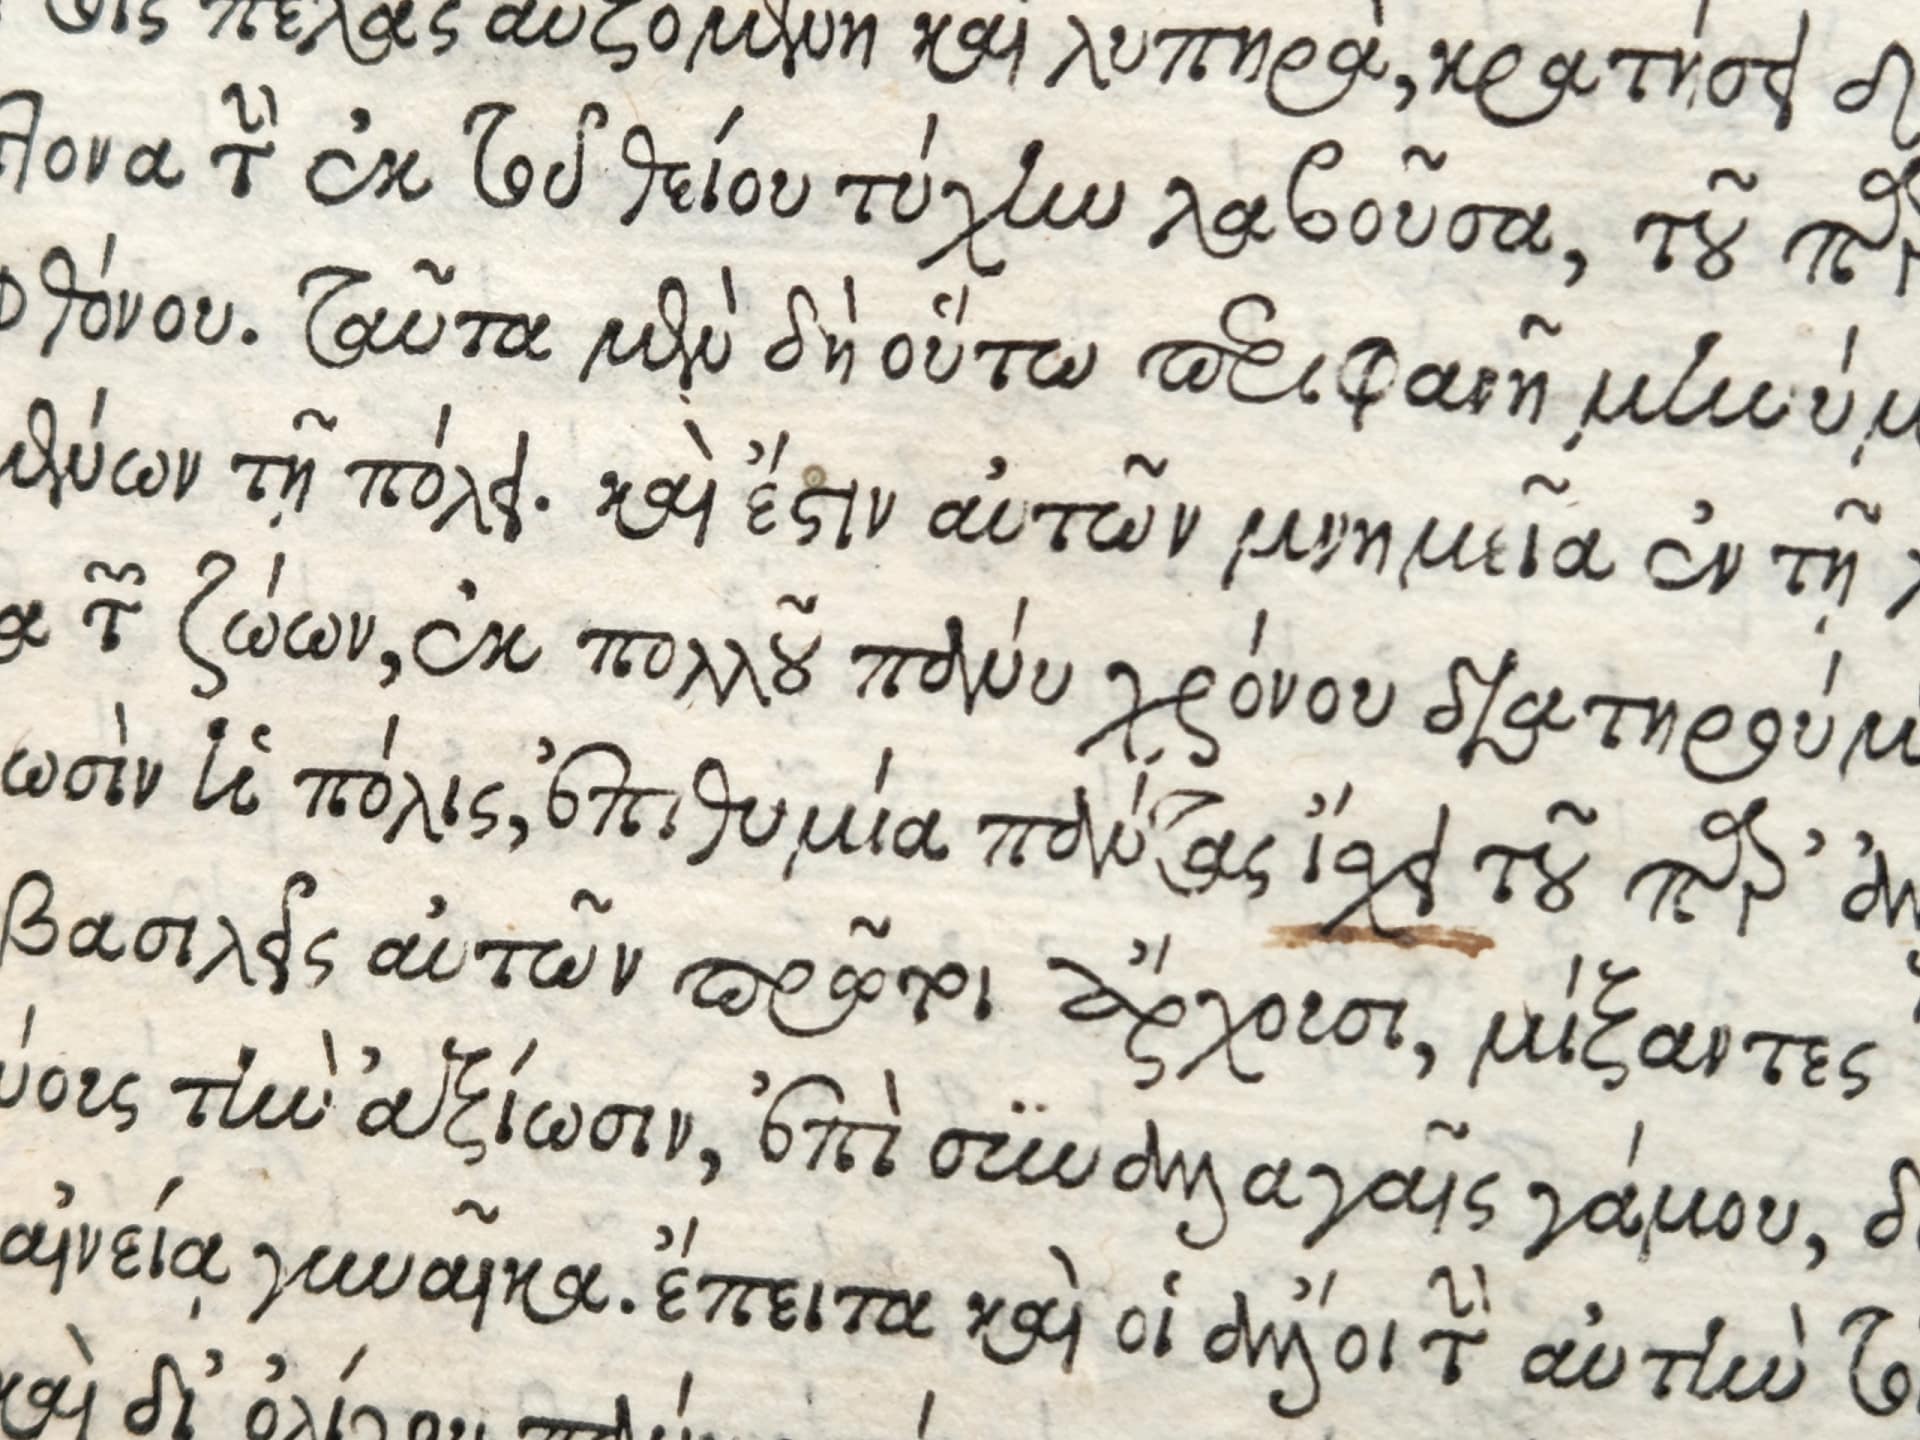 τοῖς πέλας αὐξομένη καὶ λυπηρά, κρατήσει
πλονα τὴν ἐκ τοῦ θείου τύχην λαβοῦσα, τοῦ
φθόνου. Ταῦτα μὲν δὴ οὕτω περιφανῆ μὲν
μένων τῇ πόλει. καὶ ἔστιν αὐτῶν μνημεῖα ἐν τῇ
α τῶν ζώων, ἐκ πολλοῦ πάνυ χρόνου διατηρούμ
ωσιν ἡ πόλις, ἐπιθυμία πάντας ἴσχει τοῦ
βασιλεῖς αὐτῶν πρῶτοι ἄρχουσι, μίξαντες
τὴν ἀξίωσιν, ἐπὶ συναλλαγαῖς γάμου,
αἰνείᾳ γυναῖκα. ἔπειτα καὶ οἱ ἄλλοι τὴν αὐτὴν
καὶ δι' ὀλίγου πάνυ